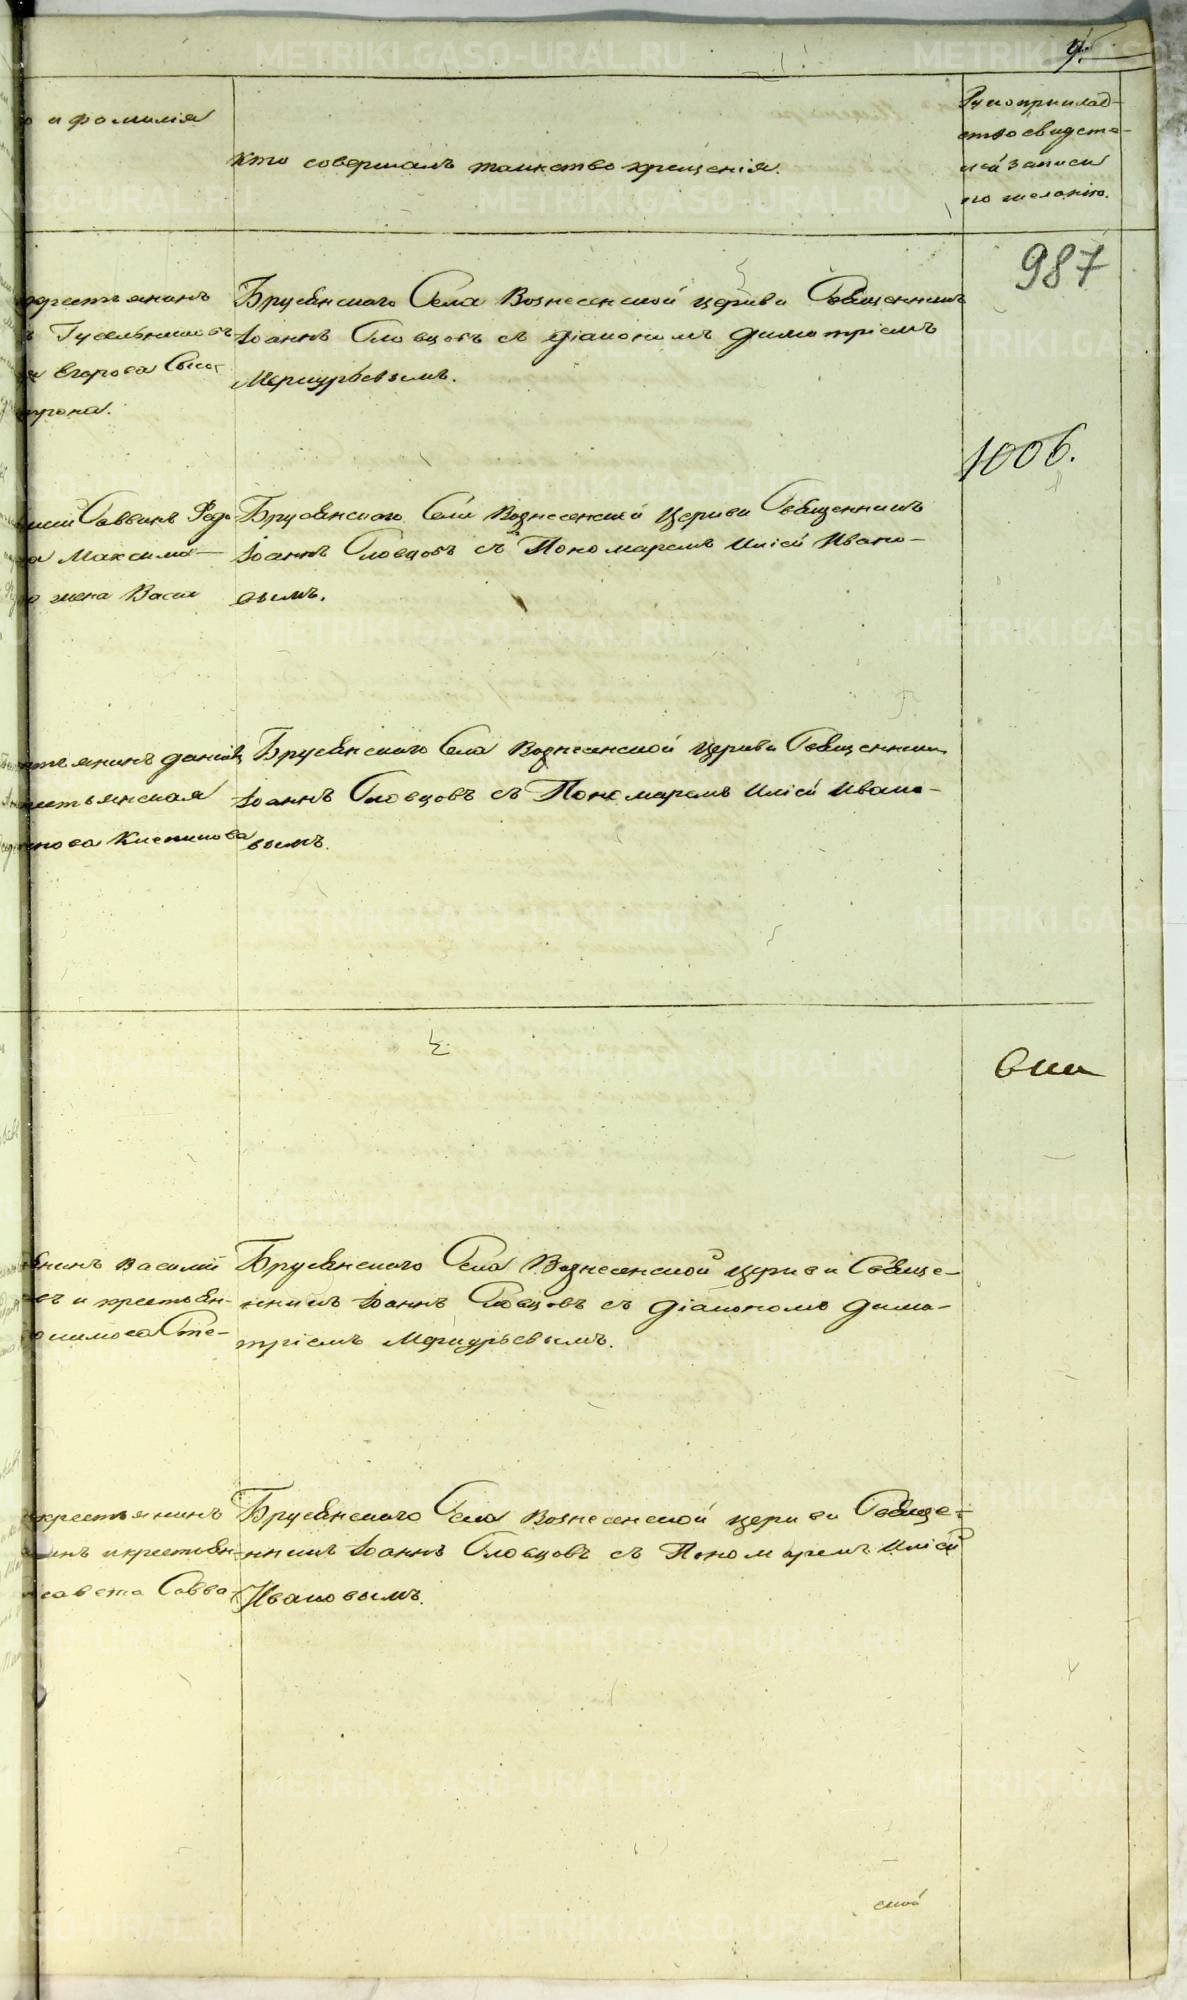 о и фамилія
Кто совершалъ таинство крещенія.
Рукоприклад-
ство свидете-
лей записи
по желанію.
987
крестьянинъ
Гусельниковъ
Егорова
Брусянскаго Села Вознесенской церкви Священникъ
Іоаннъ Словцовъ съ діакономъ Димитріемъ
Меркурьевымъ.
1006.
Саввинъ
Максимо-
жена Васи
Брусянскаго Села Вознесенской Церкви Священникъ
Іоаннъ Словцовъ съ Пономаремъ Иліей Ивано-
вымъ.
даніилъ
Брусянскаго Села Вознесенской Церкви Священникъ
Іоаннъ Словцовъ съ Пономаремъ Иліей Ивано-
вымъ.
Василій
и крестьян-
Сте-
Брусянскаго Села Вознесенской церкви Свяще-
нникъ Іоаннъ Словцовъ съ діакономъ Дими-
тріемъ Меркурьевымъ.
крестьянинъ
и крестьян-
Савва-
Брусянскаго Села Вознесенской церкви Свяще-
нникъ Іоаннъ Словцовъ съ Пономаремъ Иліей
Ивановымъ.
ской
METRIKI.GASO-URAL.RU